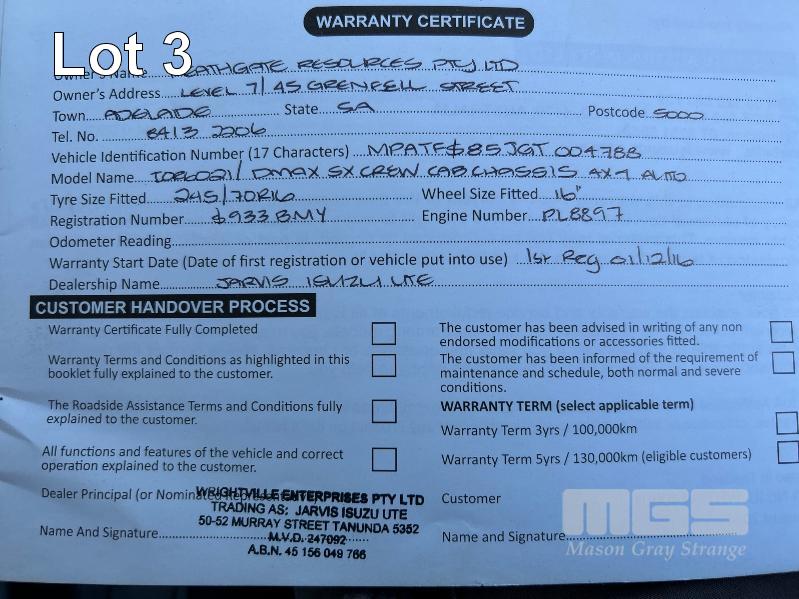 WARRANTY CERTIFICATE
Lot 3
Owner's Name RESOURCES PTY LTD
Owner's Address LEVEL 7/45 GRENFELL STREET
Town ADELAIDE State SA Postcode 5000
Tel. No. 8413 2206
Vehicle Identification Number (17 Characters) MPATFS85JGT 004788
Model Name DMAX SX CREW CAB CHASSIS 4X4 AUTO
Tyre Size Fitted 245/70R16 Wheel Size Fitted 16"
Registration Number S933 BMY Engine Number PL8897
Odometer Reading
Warranty Start Date (Date of first registration or vehicle put into use) 1st Reg 01/12/16
Dealership Name JARVIS ISUZU UTE
CUSTOMER HANDOVER PROCESS
Warranty Certificate Fully Completed
Warranty Terms and Conditions as highlighted in this
booklet fully explained to the customer.
The Roadside Assistance Terms and Conditions fully
explained to the customer.
All functions and features of the vehicle and correct
operation explained to the customer.
The customer has been advised in writing of any non
endorsed modifications or accessories fitted.
The customer has been informed of the requirement of
maintenance and schedule, both normal and severe
conditions.
WARRANTY TERM (select applicable term)
Warranty Term 3yrs / 100,000km
Warranty Term 5yrs / 130,000km (eligible customers)
Dealer Principal (or Nominated Representative)
Name And Signature
WRIGHTVILLE ENTERPRISES PTY LTD
TRADING AS: JARVIS ISUZU UTE
50-52 MURRAY STREET TANUNDA 5352
M.V.D. 247092
A.B.N. 45 156 049 766
Customer
Name and Signature
MGS
Mason Gray Strange